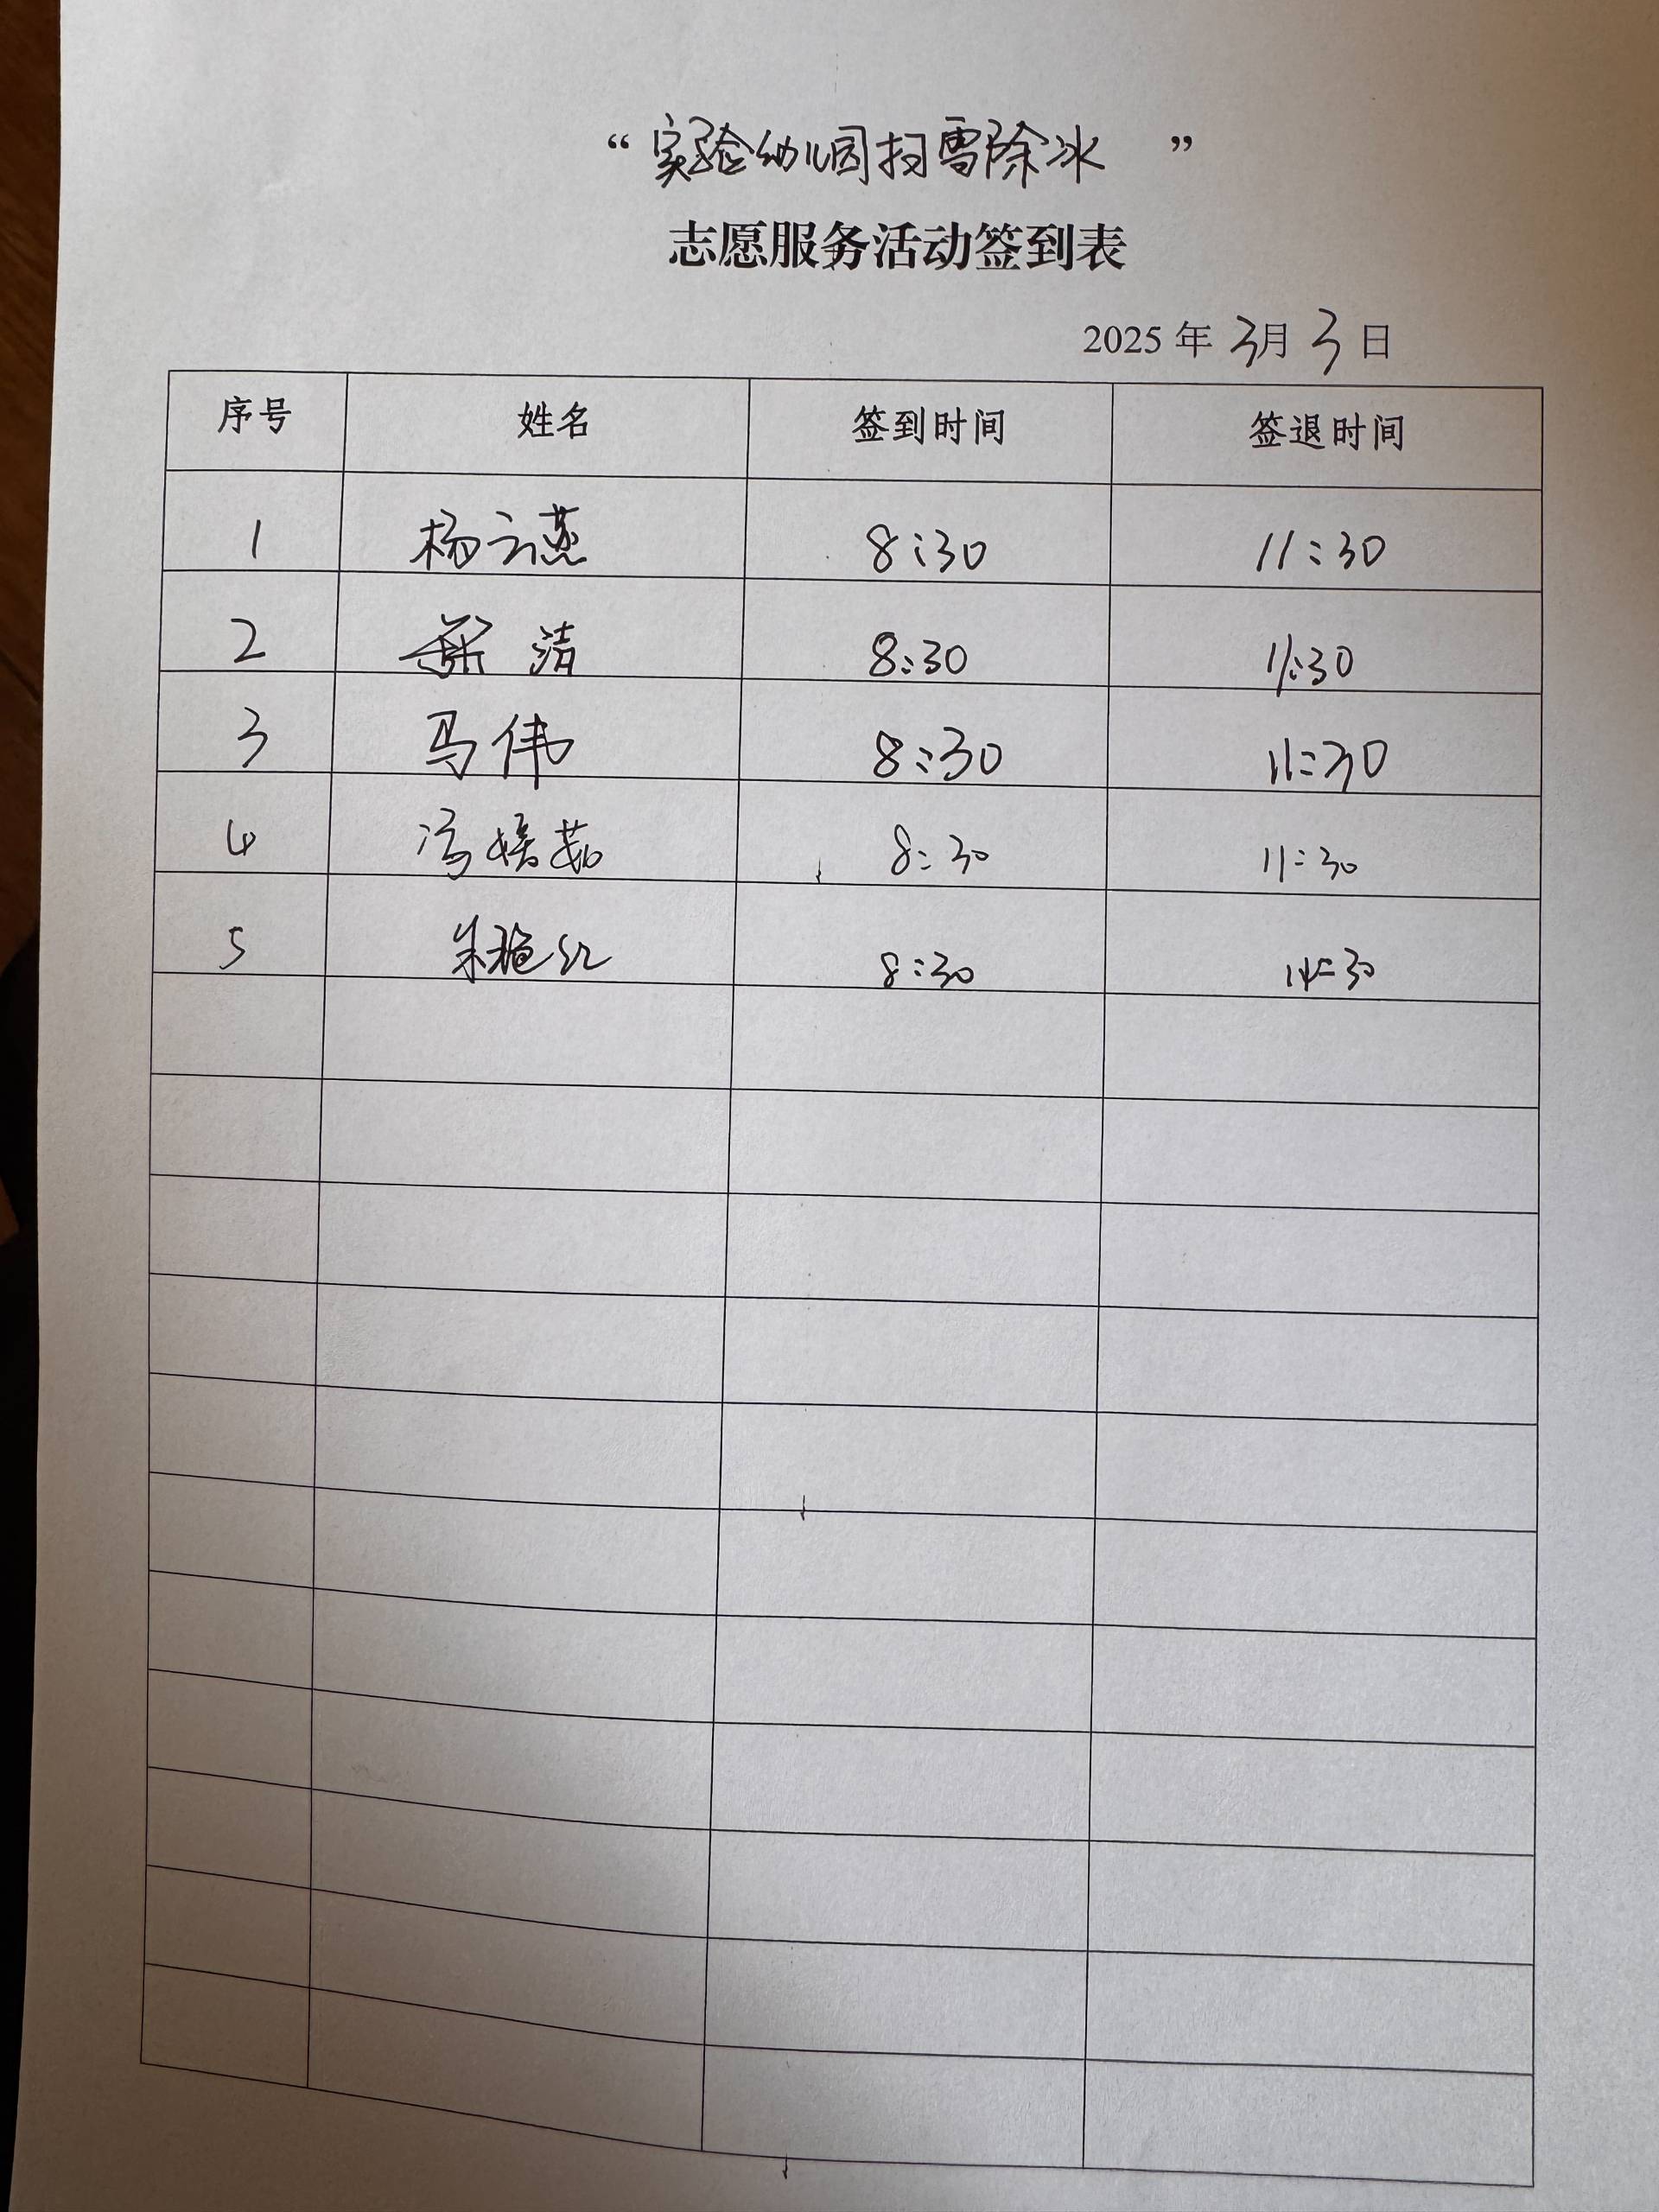 “实验幼儿园扫雪除冰”
志愿服务活动签到表
2025年3月3日
序号 姓名 签到时间 签退时间
1 杨云燕 8:30 11:30
2 洁 8:30 11:30
3 马伟 8:30 11:30
4 冯媛茹 8:30 11:30
5 朱艳红 8:30 11:30